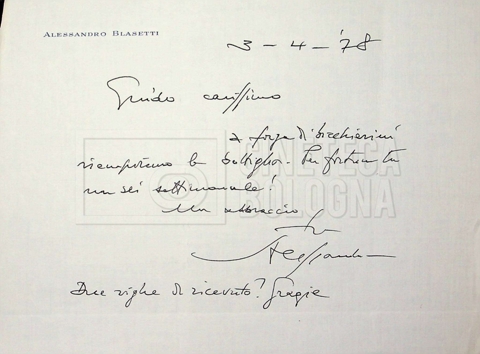 ALESSANDRO BLASETTI
3-4-'78
Guido carissimo
a forza di bicchierini
riempiremo la bottiglia. Per fortuna tu
non sei settimanale!
Un abbraccio
tuo
Alessandro
Due righe di ricevuto? Grazie
CINETECA
BOLOGNA